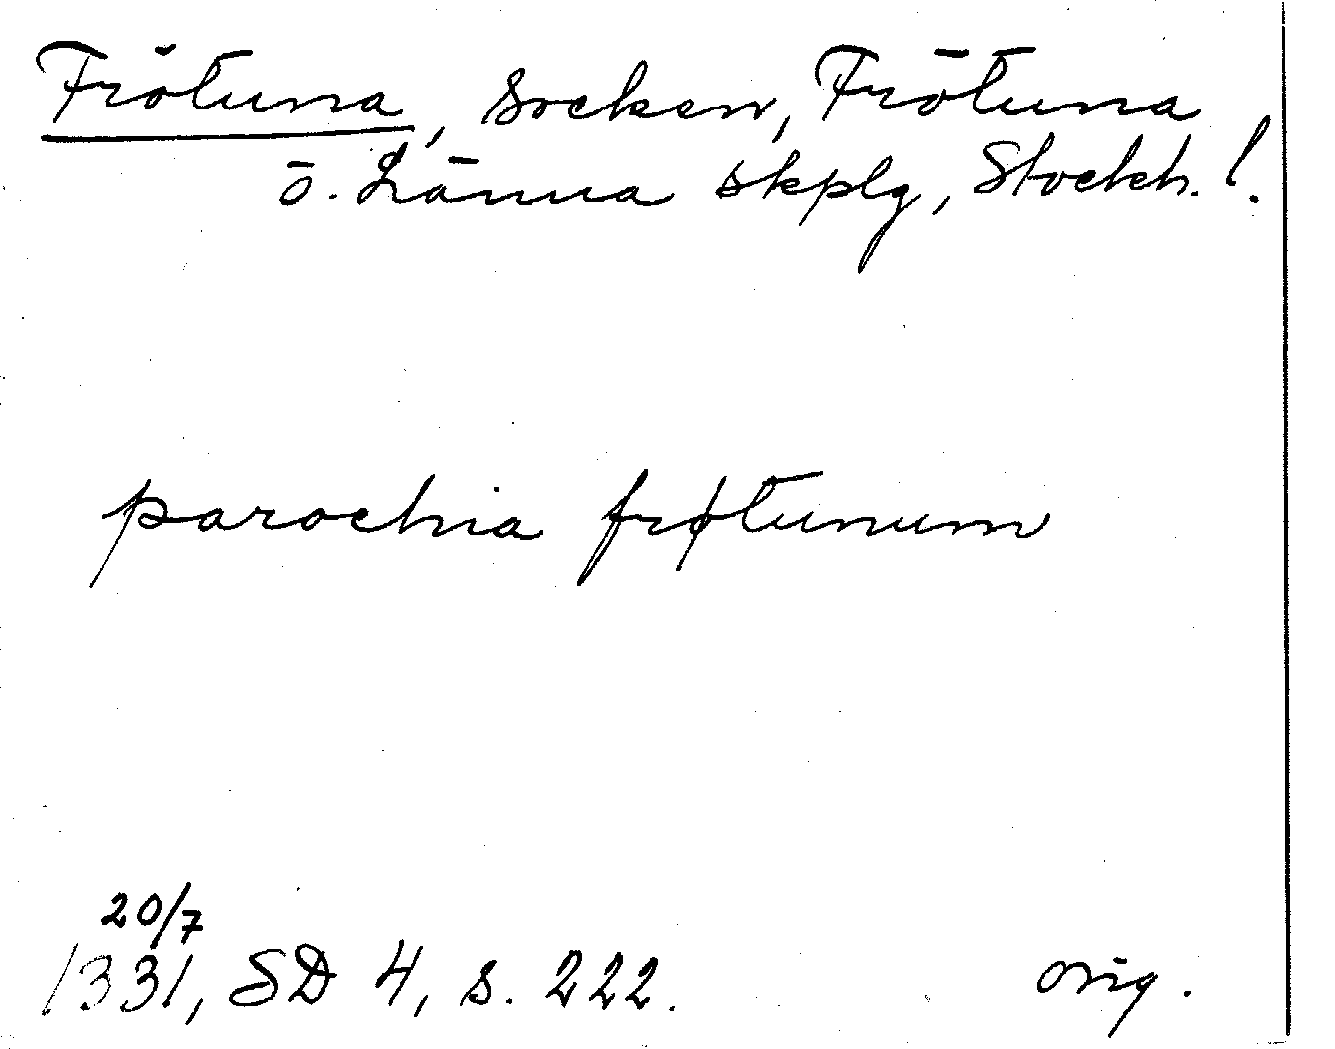 Frötuna, socken, Frötuna
o. Länna skplg, Stockh. l.
parochia frøtunum
20/7
1331, SD 4, s. 222.
orig.